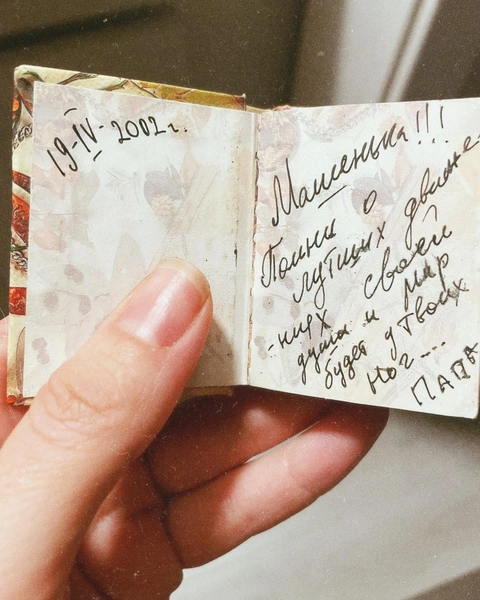 19-IV-2002 г.
Машенька!!!
Помни о
лучших движе-
-ниях своей
души и мир
будет у твоих
ног...
ПАПА